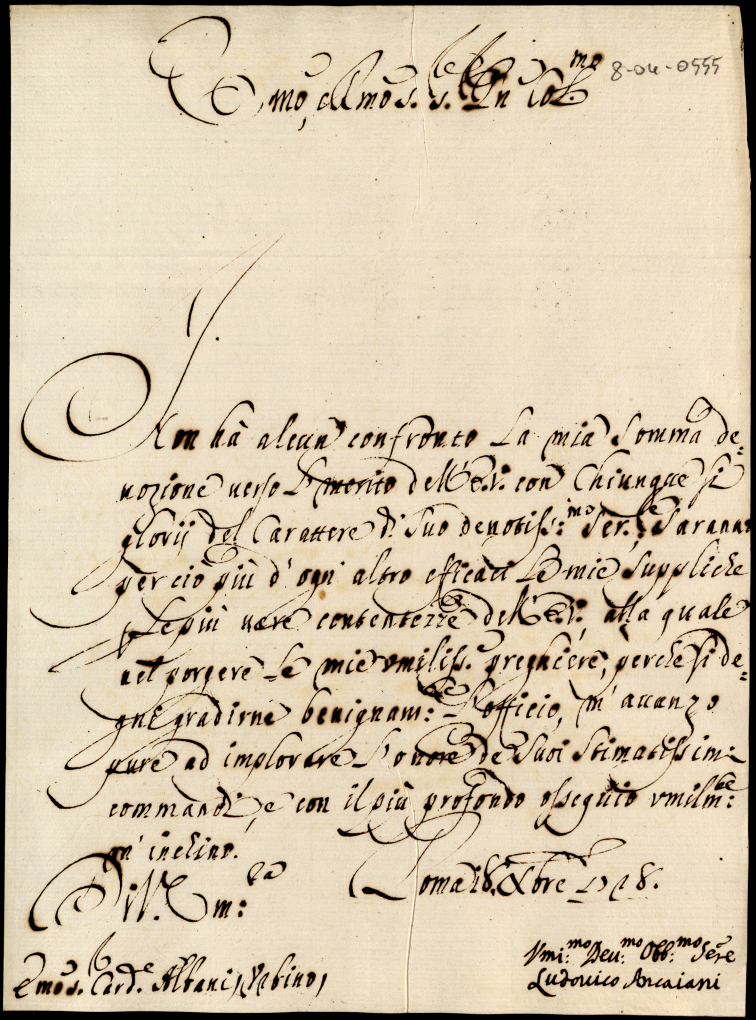 Emo, e Rmo S. S. Pñ Col.mo
8-04-0555
Non hà alcun confronto La mia Somma de=
uozione uerso L merito dell'E.V. con Chiunque si
glorij del Carattere di Suo deuotiss:mo Ser.e Sarann
perciò più d'ogni altro efficaci Le mie Suppliche
Le più uere contentezze dell'E.V., alla quale
nel porgere Le mie vmiliss: preghiere, perche si de=
gni gradirne benignam: L'officio, m'auanzo
pure ad implorare L'onore de Suoi Stimatissim:
commandi, e con il più profondo ossequio vmilm:te
m'inchino.
Di V. Em:za Roma 18. Xbre 1718.
Vmi:mo Deu:mo Obb:mo Sere
Emo S. Card.e Albani, Vrbino, Ludouico Ancaiani